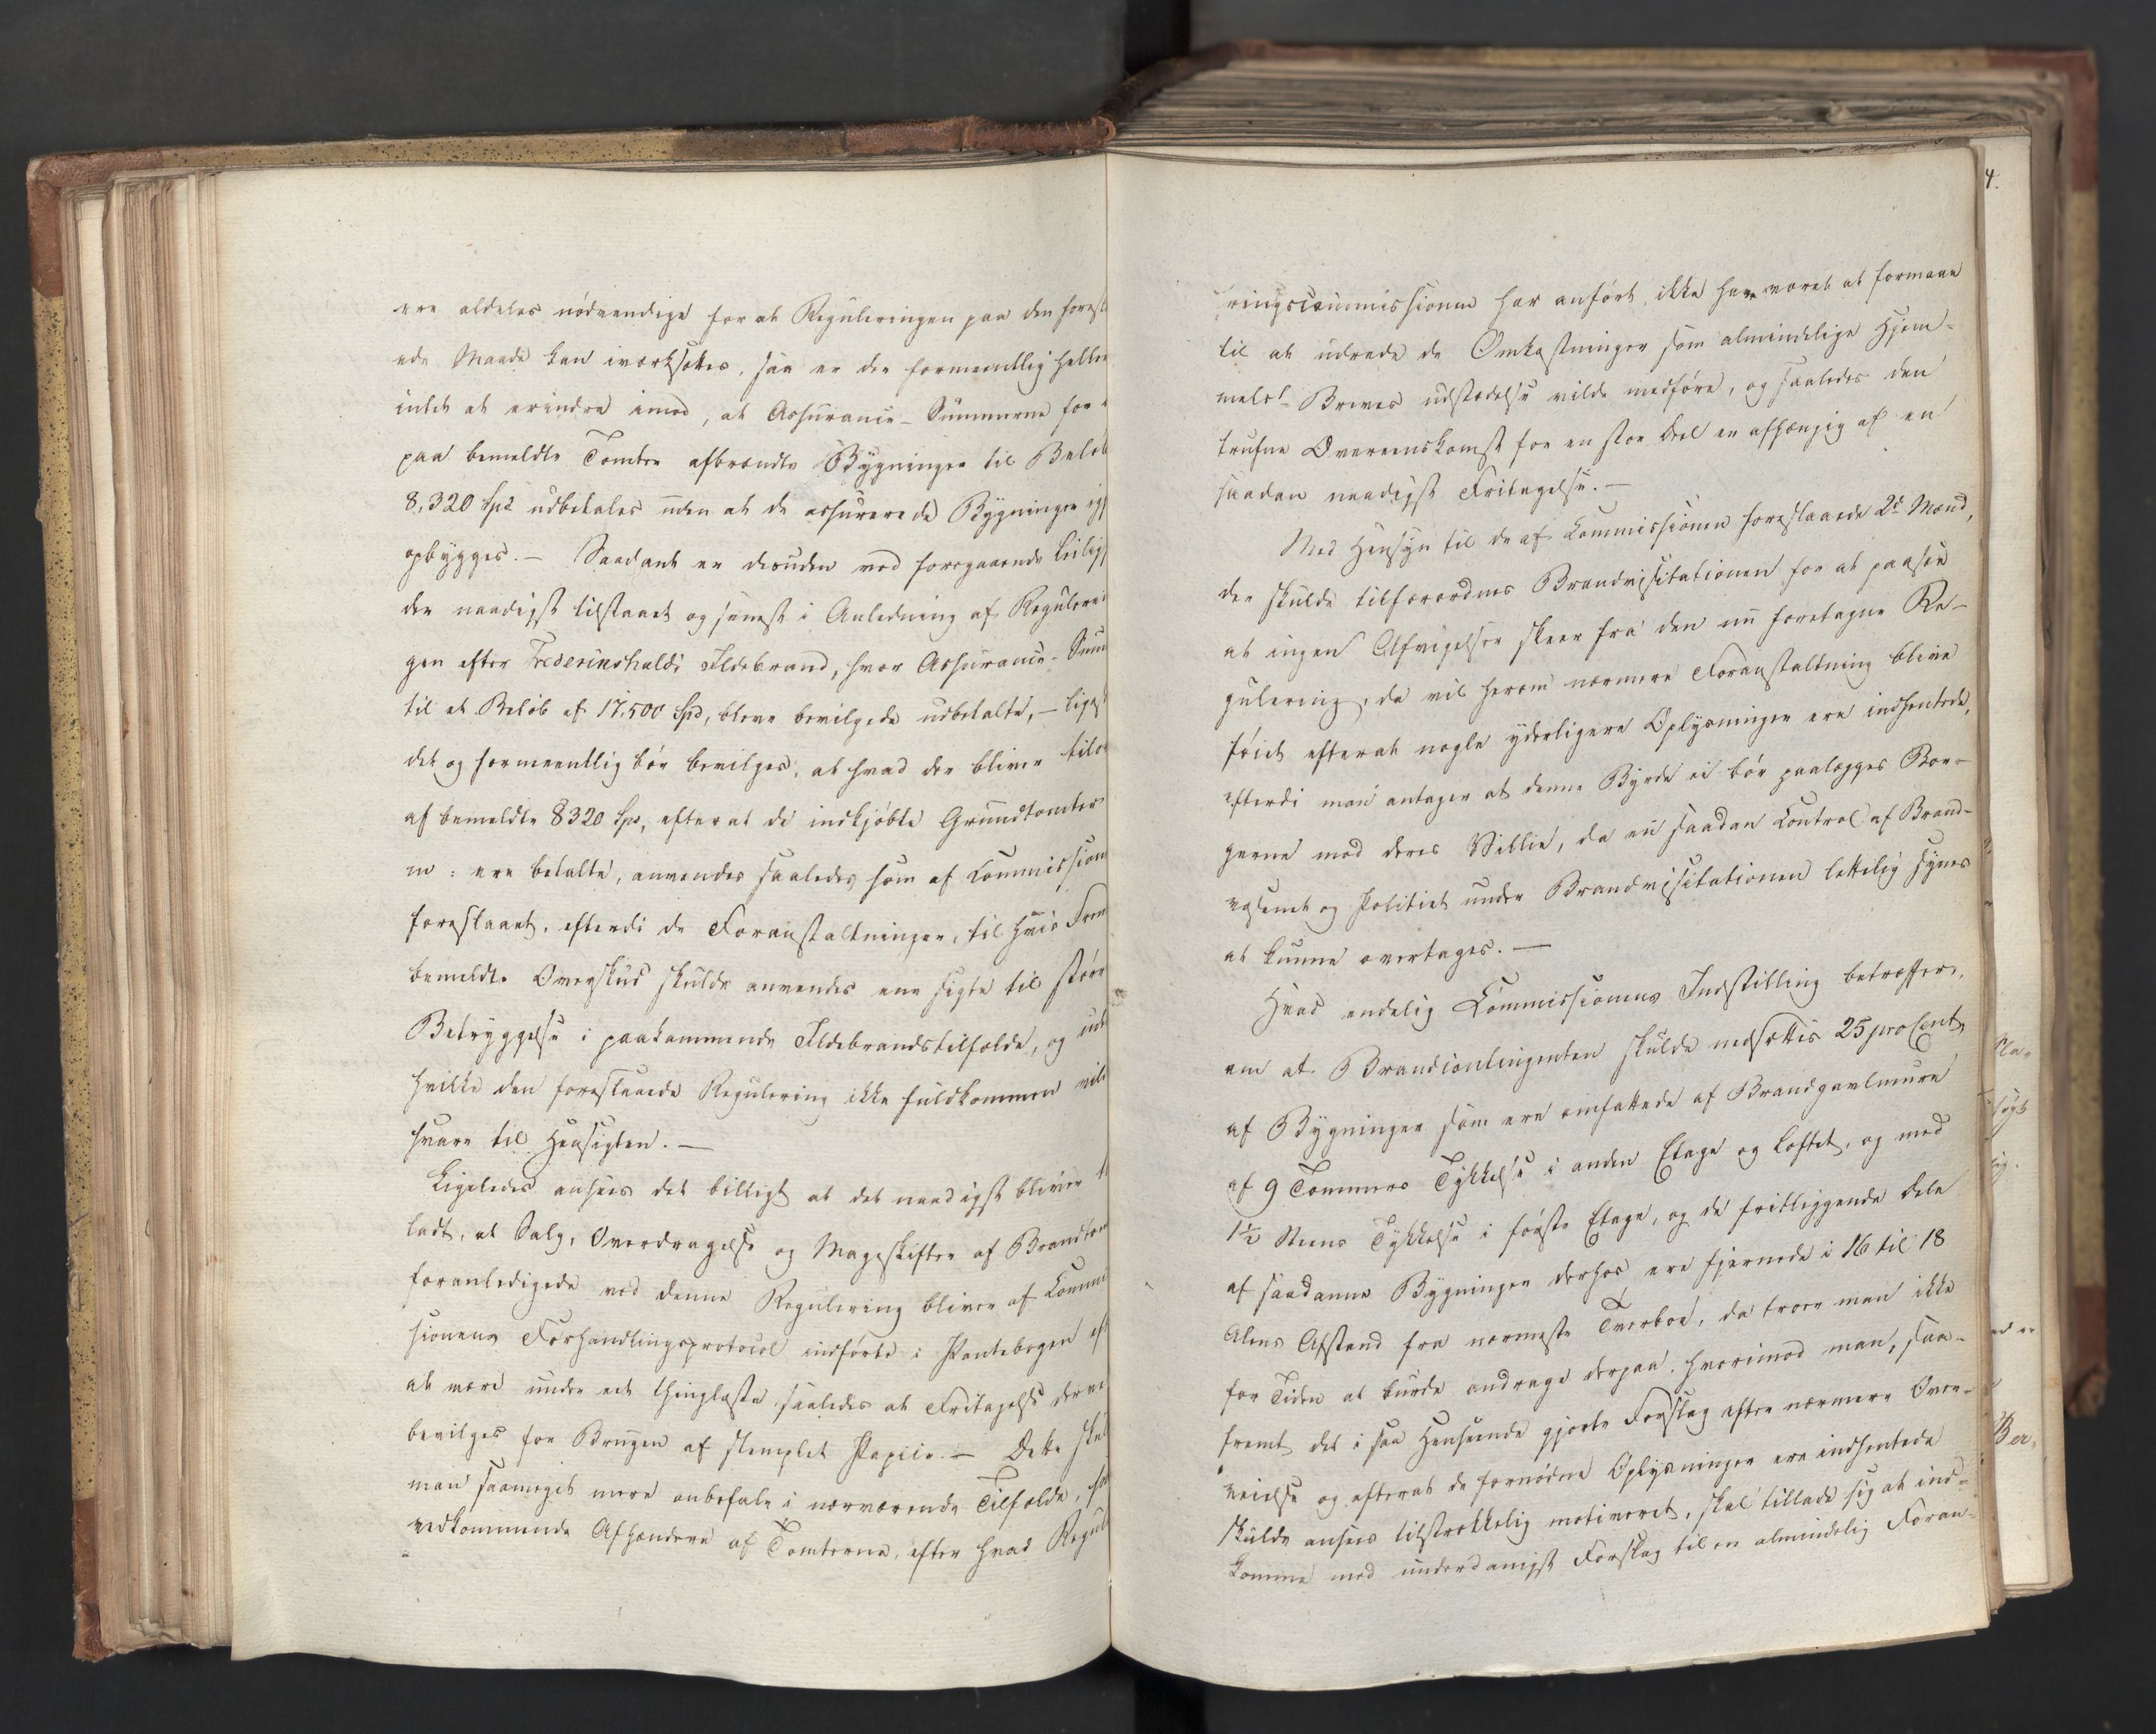 ere aldeles nödvendige for at Reguleringen paa den foresl
ede Maade kan iværksættes, saa er der formeentlig heller
intet at erindre imod, at Assurance-Summerne for
paa bemeldte Tomter afbrændte Bygninger til Beløb
8,320 Spd udbetales uden at de assurerede Bygninger igj
opbygges. – Saadant er desuden ved foregaaende Leilig
der naadigst tilstaaet og senest i Anledning af Regulerin
gen efter Frederikshalds Ildebrand, hvor Assurance-Sum
til et Beløb af 17,500 Spd, bleve bevilgede udbetalte, – liges
det og formeentlig bør bevilges, at hvad der bliver tilo
af bemeldte 8320 Spd, efterat de indkjøbte Grundtomter
m: ere betalte, anvendes saaledes som af Commission
foreslaaet, efterdi de Foranstaltninger, til hvis Frem
bemeldte Overskud skulde anvendes ene sigte til større
Betryggelse i paakommende Ildebrandstilfælde, og uden
hvilke den foreslaaede Regulering ikke fuldkommen vild
svare til Hensigten. –
Ligeledes ansees det billigt at det naadigst bliver ti
ladt, at Salg, Overdragelse og Mageskifter af Brandtom
foranledigede ved denne Regulering bliver af Commis
sionens Forhandlingsprotocol indførte i Pantebogen ef
at være under eet thinglæste saaledes at Fritagelse derve
bevilges for Brugen af stemplet Papiir. – Dette skul
man saameget mere anbefale i nærværende Tilfælde, so
vedkommende Afhændere af Tomterne, efter hvad Regul
4.
ringscommissionen har anført, ikke have været at formaae
til at udrede de Omkostninger som almindelige Hjem-
mels-Breves udstædelse vilde medføre, og saaledes den
trufne Overeenskomst for en stor Deel er afhængig af en
saadan naadigst Fritagelse. –
Med Hensyn til de af Commissionen foreslaaede 2de Mænd,
der skulde tilforordnes Brandvisitationen for at paasee
at ingen Afvigelser skeer fra den nu foretagne Re-
gulering, da vil herom nærmere Foranstaltning blive
føiet efterat nogle yderligere Oplysninger ere indhentede,
efterdi man antager at denne Byrde ei bør paalægges Bor-
gerne mod deres Villie, da en saadan Control af Brand-
væsenet og Politiet under Brandvisitationen lettelig synes
at kunne overtages. –
Hvad endelig Commissionens Indstilling betræffer,
om at Brandcontingenten skulde nedsættes 25 pro Cent,
af Bygninger som ere omfattede af Brandgavlmure
af 9 Tommers Tykkelse i anden Etage og Loftet, og med
1½ Steens Tykkelse i første Etage, og de fritliggende Dele
af saadanne Bygninger derhos ere fjernede i 16 til 18
Alens Afstand fra nærmeste Tverboe, da troer man ikke
for Tiden at burde andrage derpaa. hvorimod man, saa-
fremt det i saa Henseende gjorte Forslag efter nærmere Over-
veielse og efterat de fornødne Oplysninger ere indhentede
skulde ansees tilstrækkelig motiveret, skal tillade sig at ind-
komme med underdanigst Forslag til en almindelig Foran-